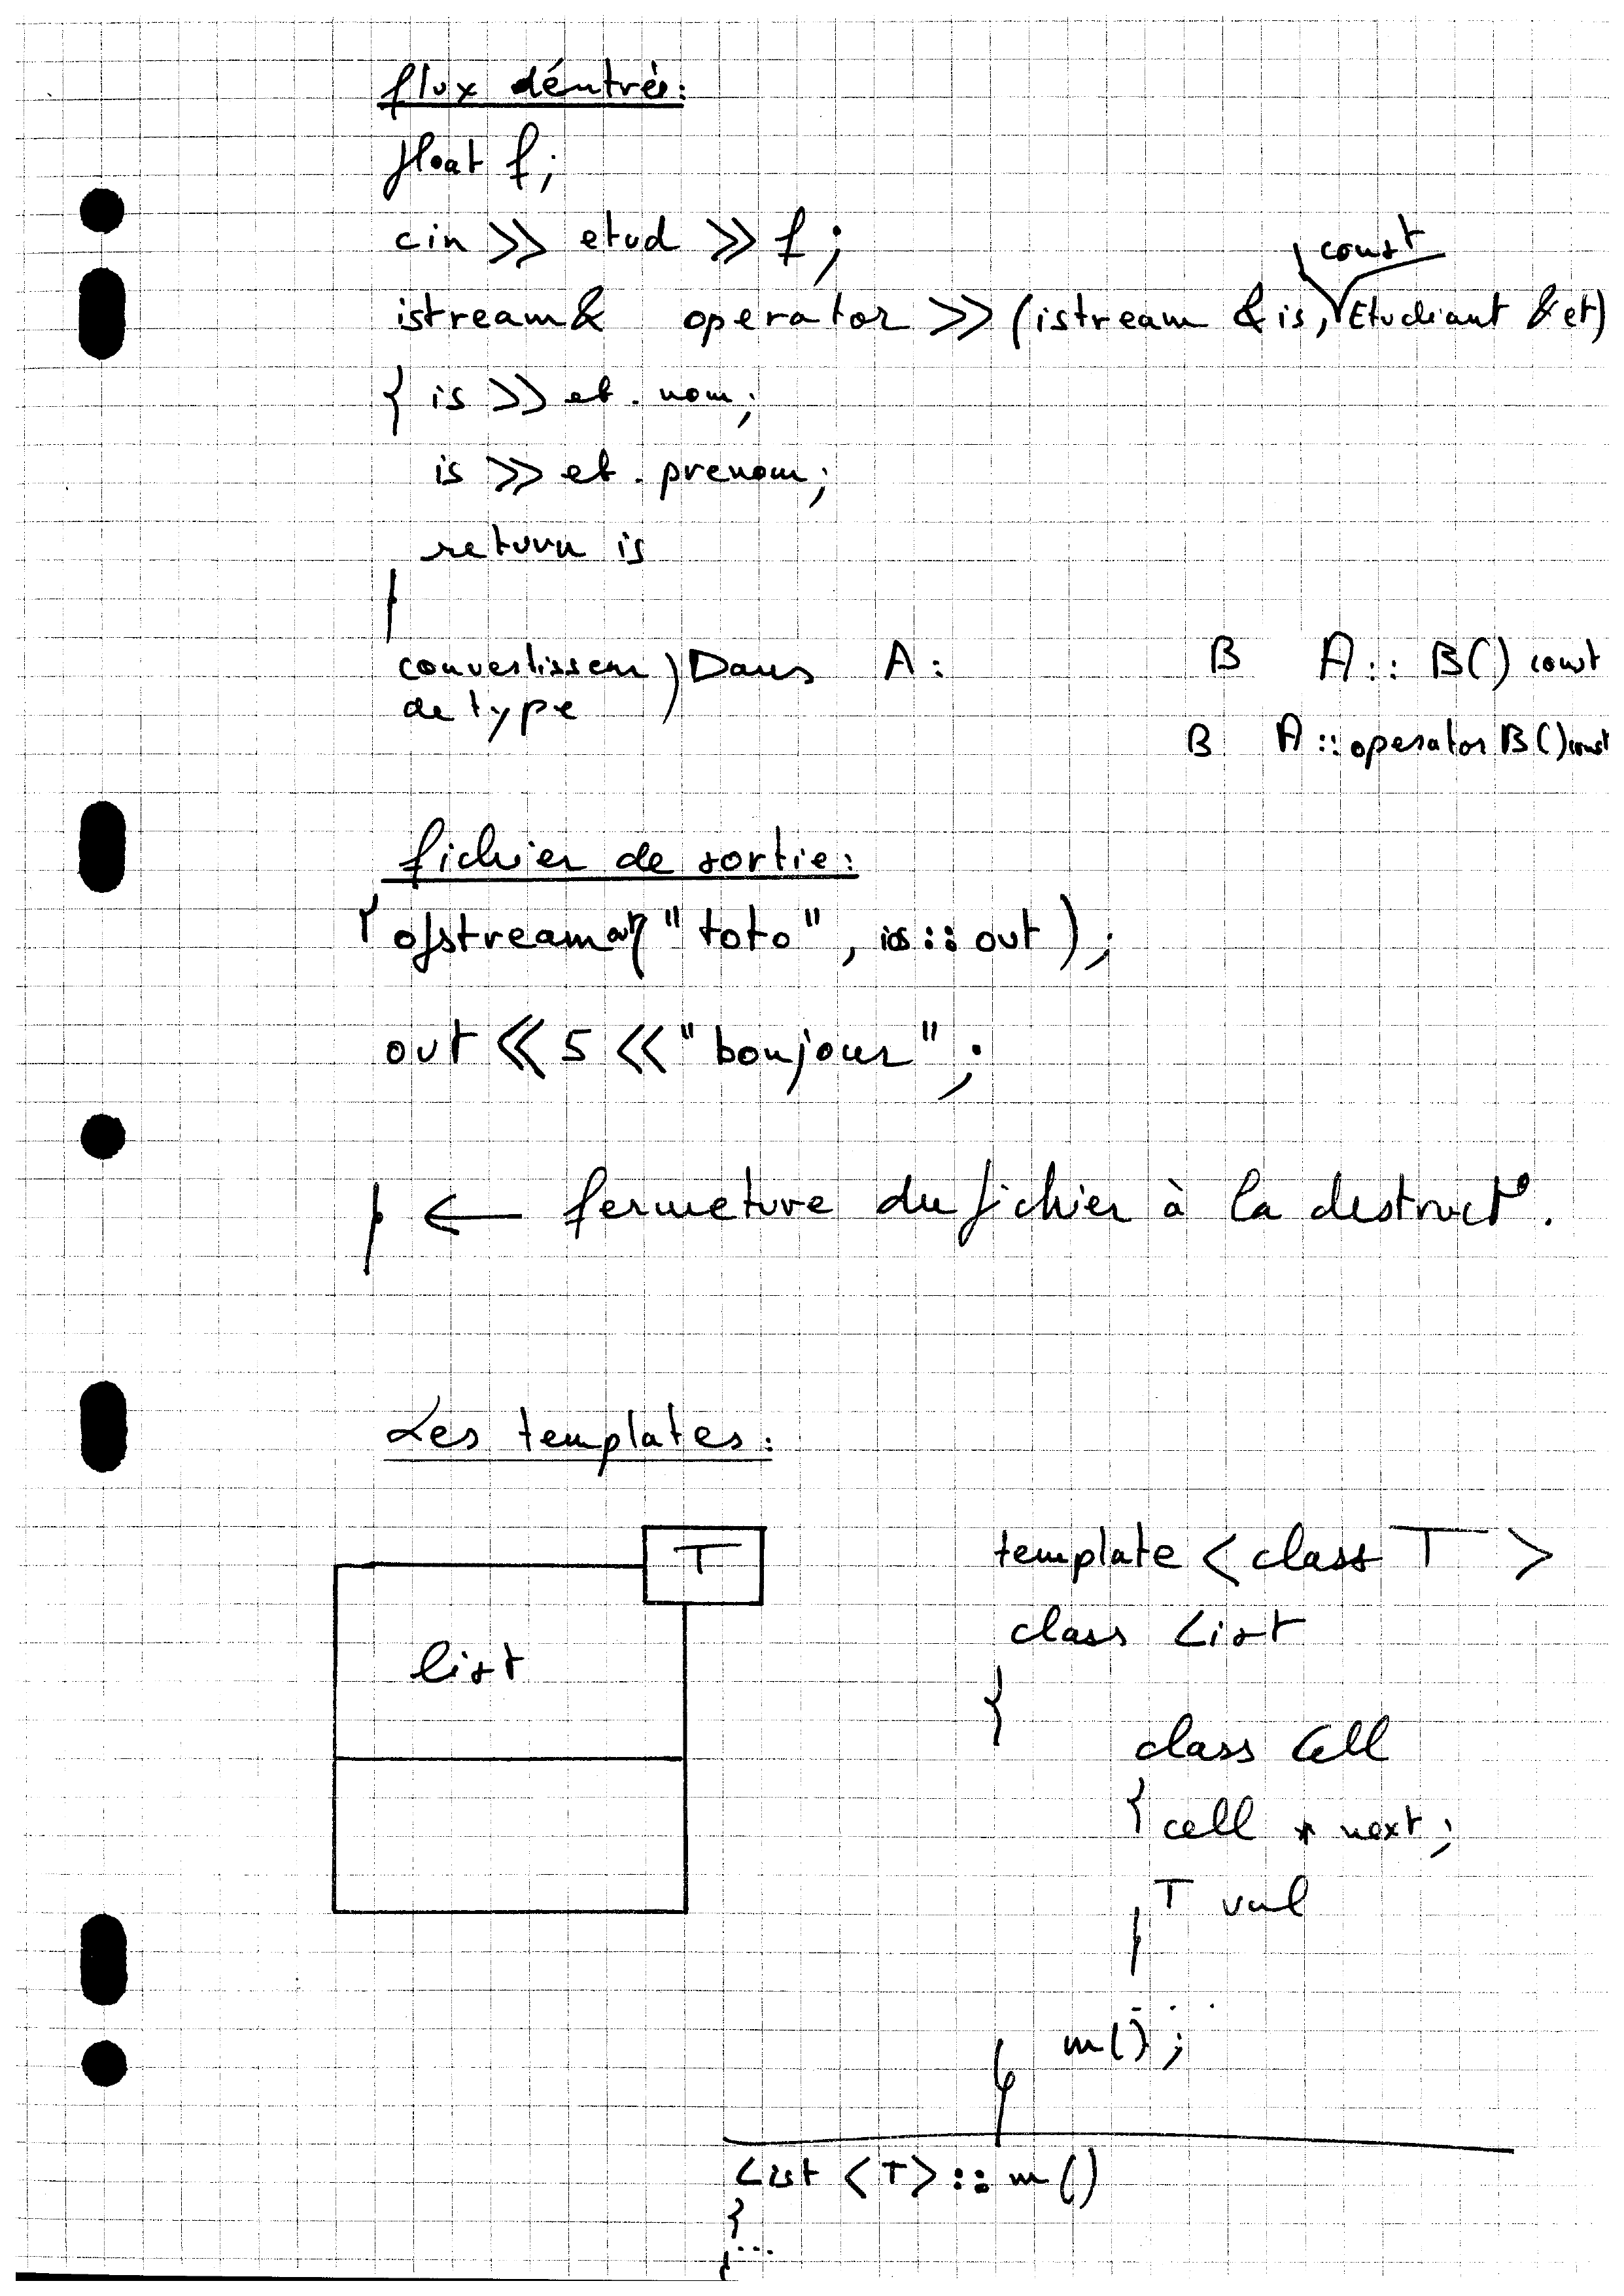 flux déntrée:
float f;
cin >> etud >> f;
const
istream& operator >> (istream &is, Etudiant &et)
{ is >> et.nom;
is >> et.prenom;
return is
}
convertisseur de type ) Dans A: B A::B() const
B A::operator B() const
fichier de sortie:
{ ofstream out("toto", ios::out);
out << 5 << "bonjour";
} ← fermeture du fichier à la destruct°.
Les templates:
T
list
template < class T >
class List
{
class Cell
{ cell * next;
T val
}
...
m();
}
List <T>::m()
{
...
}